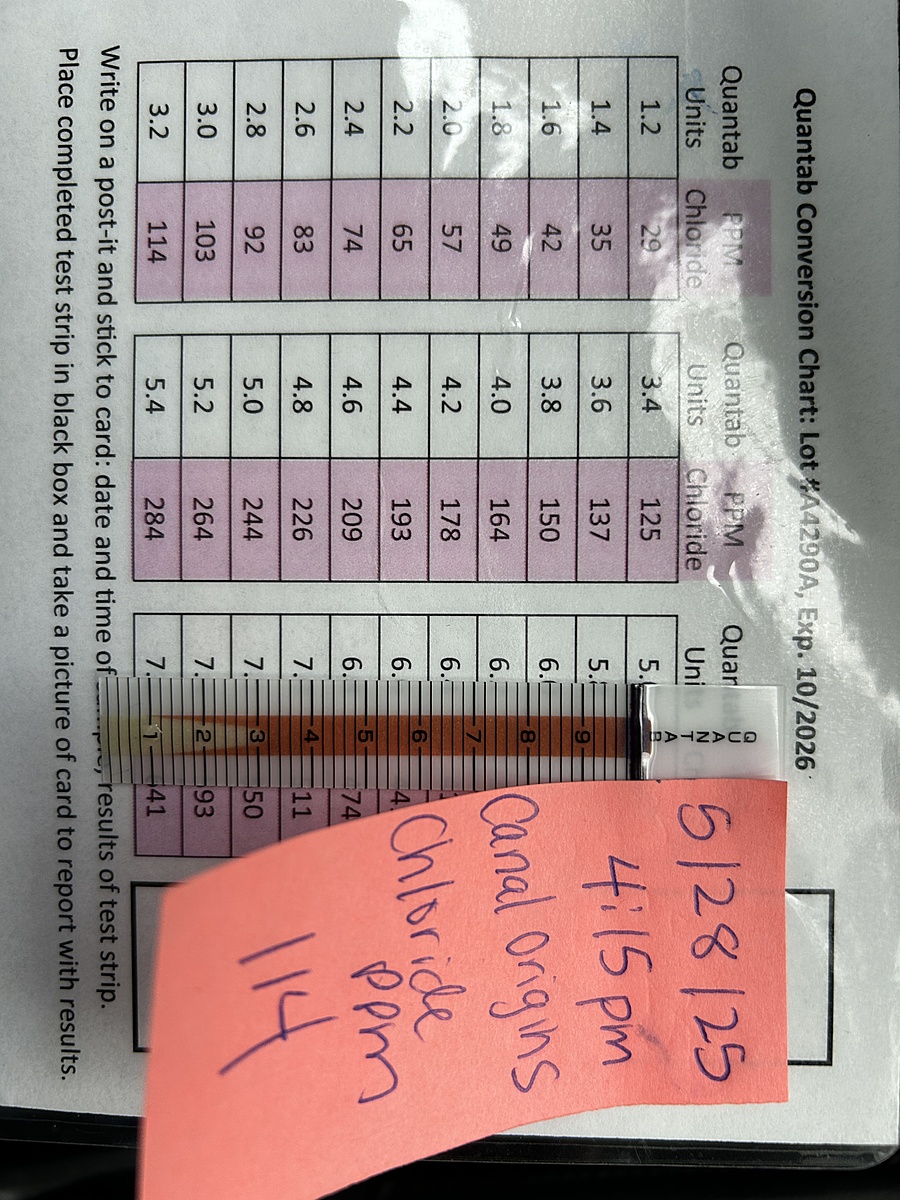 Quantab Conversion Chart: Lot #A4290A, Exp. 10/2026
Quantab Units PPM Chloride
1.2 29
1.4 35
1.6 42
1.8 49
2.0 57
2.2 65
2.4 74
2.6 83
2.8 92
3.0 103
3.2 114
Quantab Units PPM Chloride
3.4 125
3.6 137
3.8 150
4.0 164
4.2 178
4.4 193
4.6 209
4.8 226
5.0 244
5.2 264
5.4 284
5.
5.
6.
6.
6.
6. 4
6. 74
7. 11
7. 50
7. 93
7. 41
QUANTAB
9
8
7
6
5
4
3
2
1
Write on a post-it and stick to card: date and time of results of test strip.
Place completed test strip in black box and take a picture of card to report with results.
5/28/25
4:15 pm
Canal Origins
Chloride
ppm
114